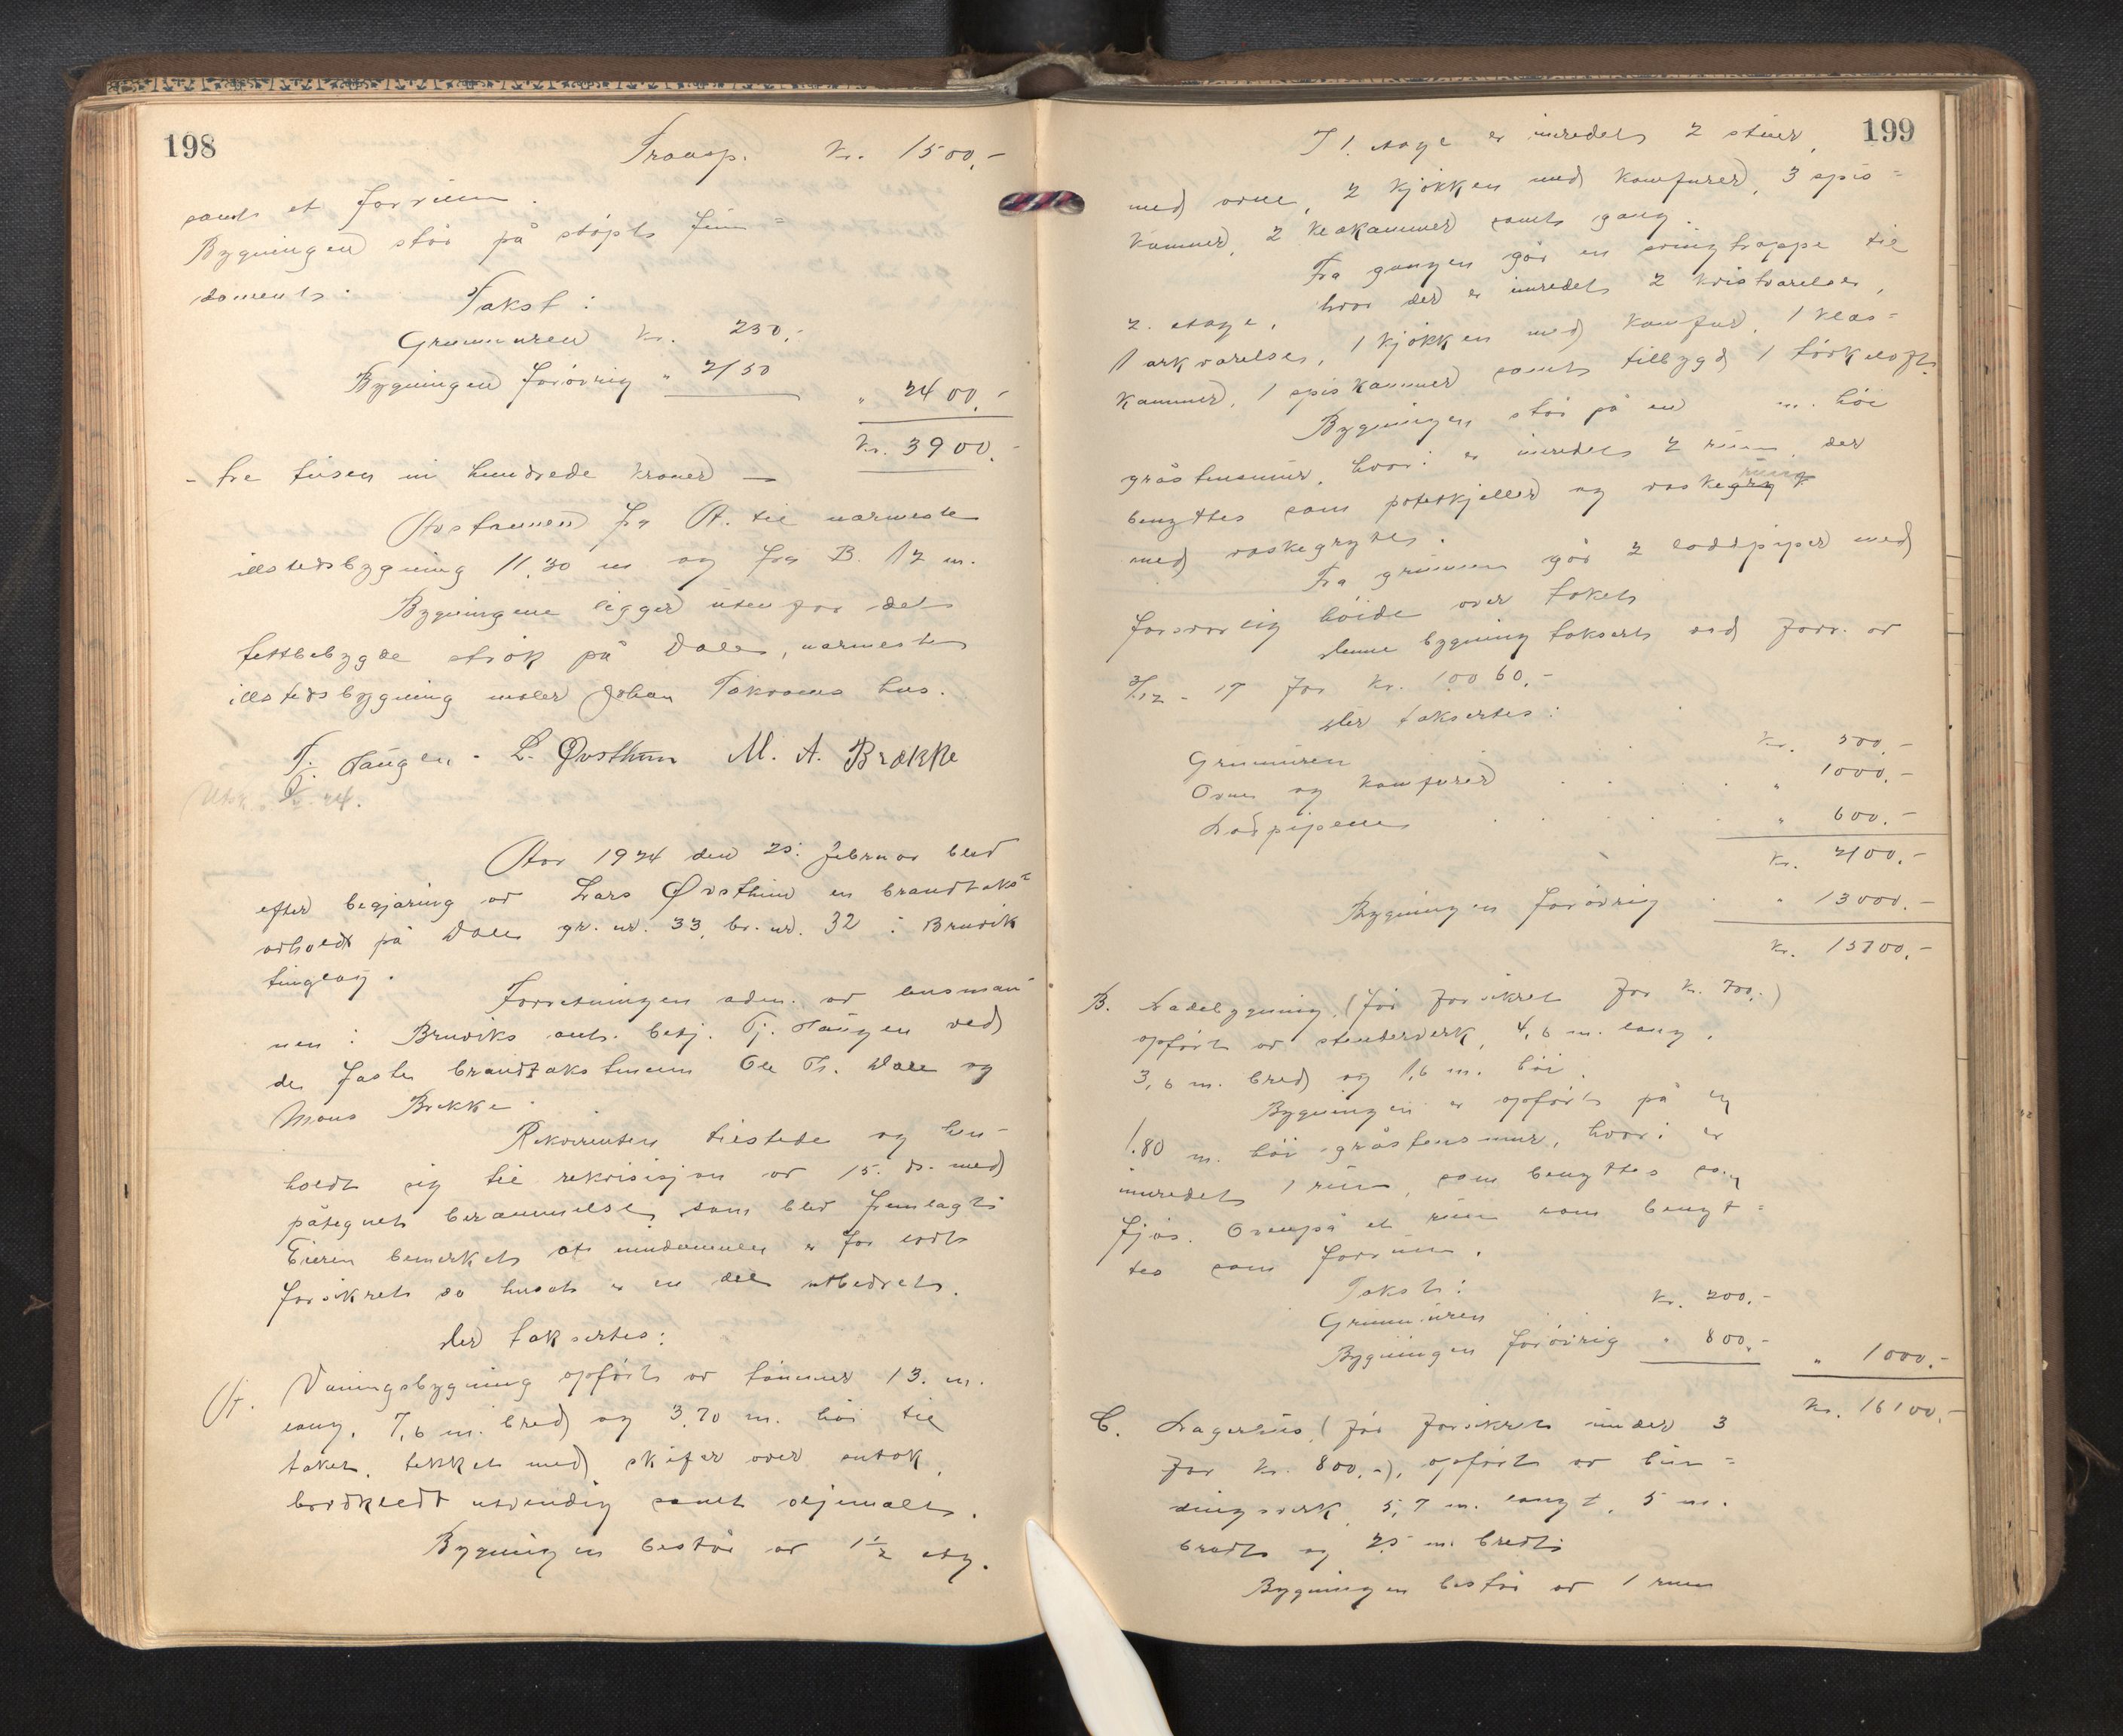 198
Transp. kr. 1500,-
samt et forrum.
Bygningen står på støpt fun=
dament.
Takst:
Grunnmuren kr. 250,-
Bygningen forøvrig " 2150
" 2400,-
kr. 3900,-
- tre tusen ni hundrede kroner -
Avstannen fra A. til nærmeste
ildstedsbygning 11,30 m og fra B. 12 m.
Bygningene ligger utenfor det
tettbebygde strøk på Dale, nærmeste
ildstedsbygning er Johan Takvams hus.
T. Haugen. L. Øvsthun M. A. Brække
Utsk. 24.
Aar 1924 den 25. februar blev
efter begjæring av Lars Øvsthun en brandtakst
avholdt på Dale gr. nr. 33, br. nr. 32 i Bruvik
tinglag.
Forretningen adm. av lensman-
nen i Bruviks aut. betj. Tj. Haugen ved
de faste brandtakstmenn Ole Th. Dale og
Mons Brekke.
Rekvirenten tilstede og hen-
holdt sig til rekvisisjon av 15. ds. med
påtegnet berammelse som blev fremlagt.
Eieren bemerket at eiendommen er for lavt
forsikret da huset er en del utbedret.
Der taksertes:
A. Våningsbygning opført av tømmer 13. m.
lang, 7,6 m. bred og 3,70 m. høi til
taket, tekket med skifer over sutak,
bordkledt utvendig samt oljemalt.
Bygningen består av 1½ etg.
199
I 1. etage er inredet 2 stuer
med ovne, 2 kjøkken med komfurer, 3 spis=
kammer, 2 kleskammer samt gang.
Fra gangen går en svingtrappe til
2. etage, hvor der er inredet 2 kvistværelser,
1 arkværelse, 1 kjøkken med komfur, 1 kles=
kammer, 1 spiskammer samt tilbygd 1 tørkeloft.
Bygningen står på en m. høi
gråstensmur, hvori er inredet 2 rum, der
benyttes som potetkjeller og vaskerum
med vaskegryte.
Fra grunnen går 2 loddpiper med
forsvarlig høide over taket
Denne bygning taksert ved forr. av
3/12 - 17 for kr. 10060,-
Der taksertes:
Grunnmuren kr. 500,-
Ovne og komfurer " 1000,-
Lodpipene " 600,-
kr. 2100,-
Bygningen forøvrig " 13000,-
kr. 15100,-
B. Ladebygning, (før forsikret for kr. 700,-)
opført av stenderverk, 4,6 m. lang,
3,6 m. bred og 1,6 m. høi.
Bygningen er opført på en
1.80 m. høi gråstensmur, hvori er
inredet 1 rum, som benyttes som
fjøs. Ovenpå et rum som benyt=
tes som forrum.
Takst:
Grunnmuren kr. 200,-
Bygningen forøvrig " 800,-
" 1000,-
kr. 16100,-
C. Lagerhus, (før forsikret under 3
for kr. 800,-), opført av bin=
dingsverk, 5,7 m. langt, 5 m.
bredt og 2,5 m. bredt.
Bygningen består av 1 rum